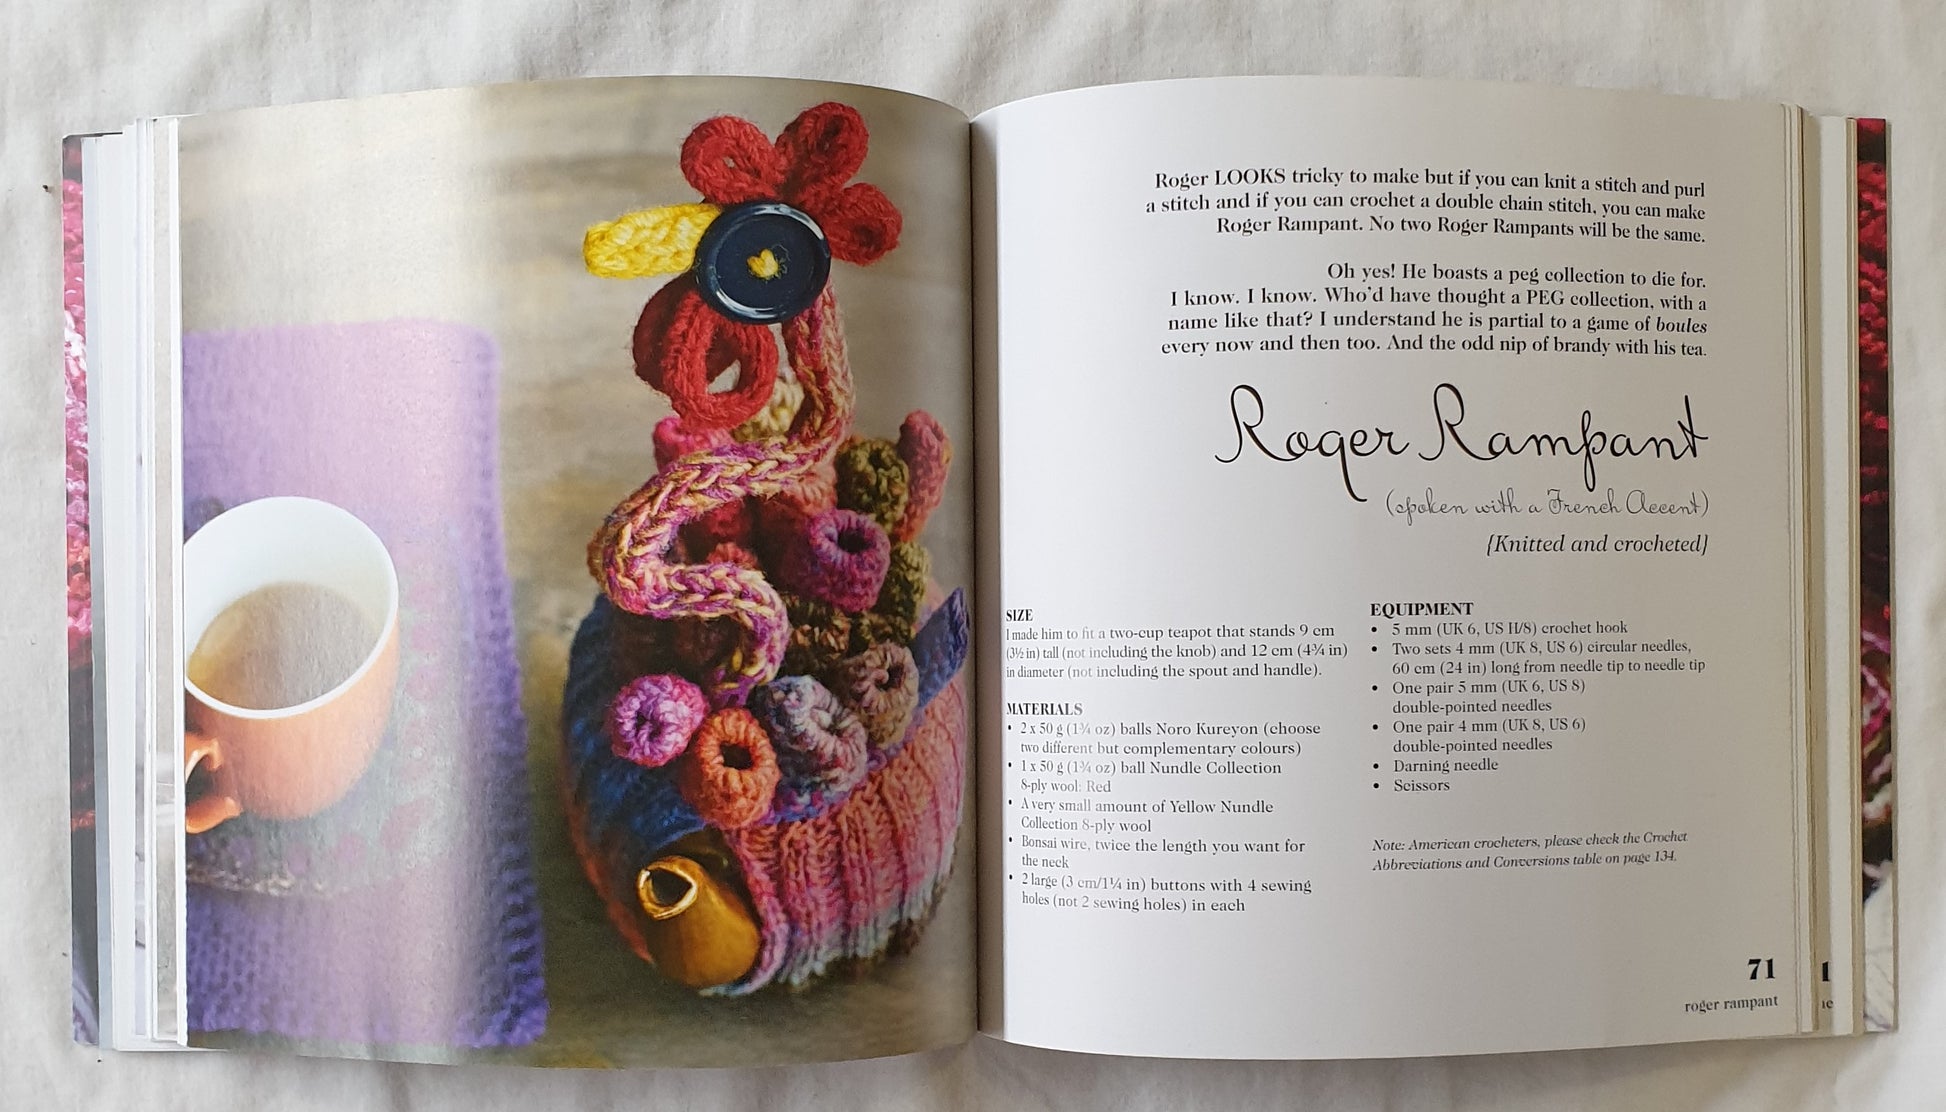 Roger LOOKS tricky to make but if you can knit a stitch and purl
a stitch and if you can crochet a double chain stitch, you can make
Roger Rampant. No two Roger Rampants will be the same.
Oh yes! He boasts a peg collection to die for.
I know. I know. Who'd have thought a PEG collection, with a
name like that? I understand he is partial to a game of boules
every now and then too. And the odd nip of brandy with his tea.
Roger Rampant
(spoken with a French Accent)
{Knitted and crocheted}
SIZE
I made him to fit a two-cup teapot that stands 9 cm
(3½ in) tall (not including the knob) and 12 cm (4¾ in)
in diameter (not including the spout and handle).
MATERIALS
• 2 x 50 g (1¾ oz) balls Noro Kureyon (choose
two different but complementary colours)
• 1 x 50 g (1¾ oz) ball Nundle Collection
8-ply wool: Red
• A very small amount of Yellow Nundle
Collection 8-ply wool
• Bonsai wire, twice the length you want for
the neck
• 2 large (3 cm/1¼ in) buttons with 4 sewing
holes (not 2 sewing holes) in each
EQUIPMENT
• 5 mm (UK 6, US H/8) crochet hook
• Two sets 4 mm (UK 8, US 6) circular needles,
60 cm (24 in) long from needle tip to needle tip
• One pair 5 mm (UK 6, US 8)
double-pointed needles
• One pair 4 mm (UK 8, US 6)
double-pointed needles
• Darning needle
• Scissors
Note: American crocheters, please check the Crochet
Abbreviations and Conversions table on page 134.
71
roger rampant